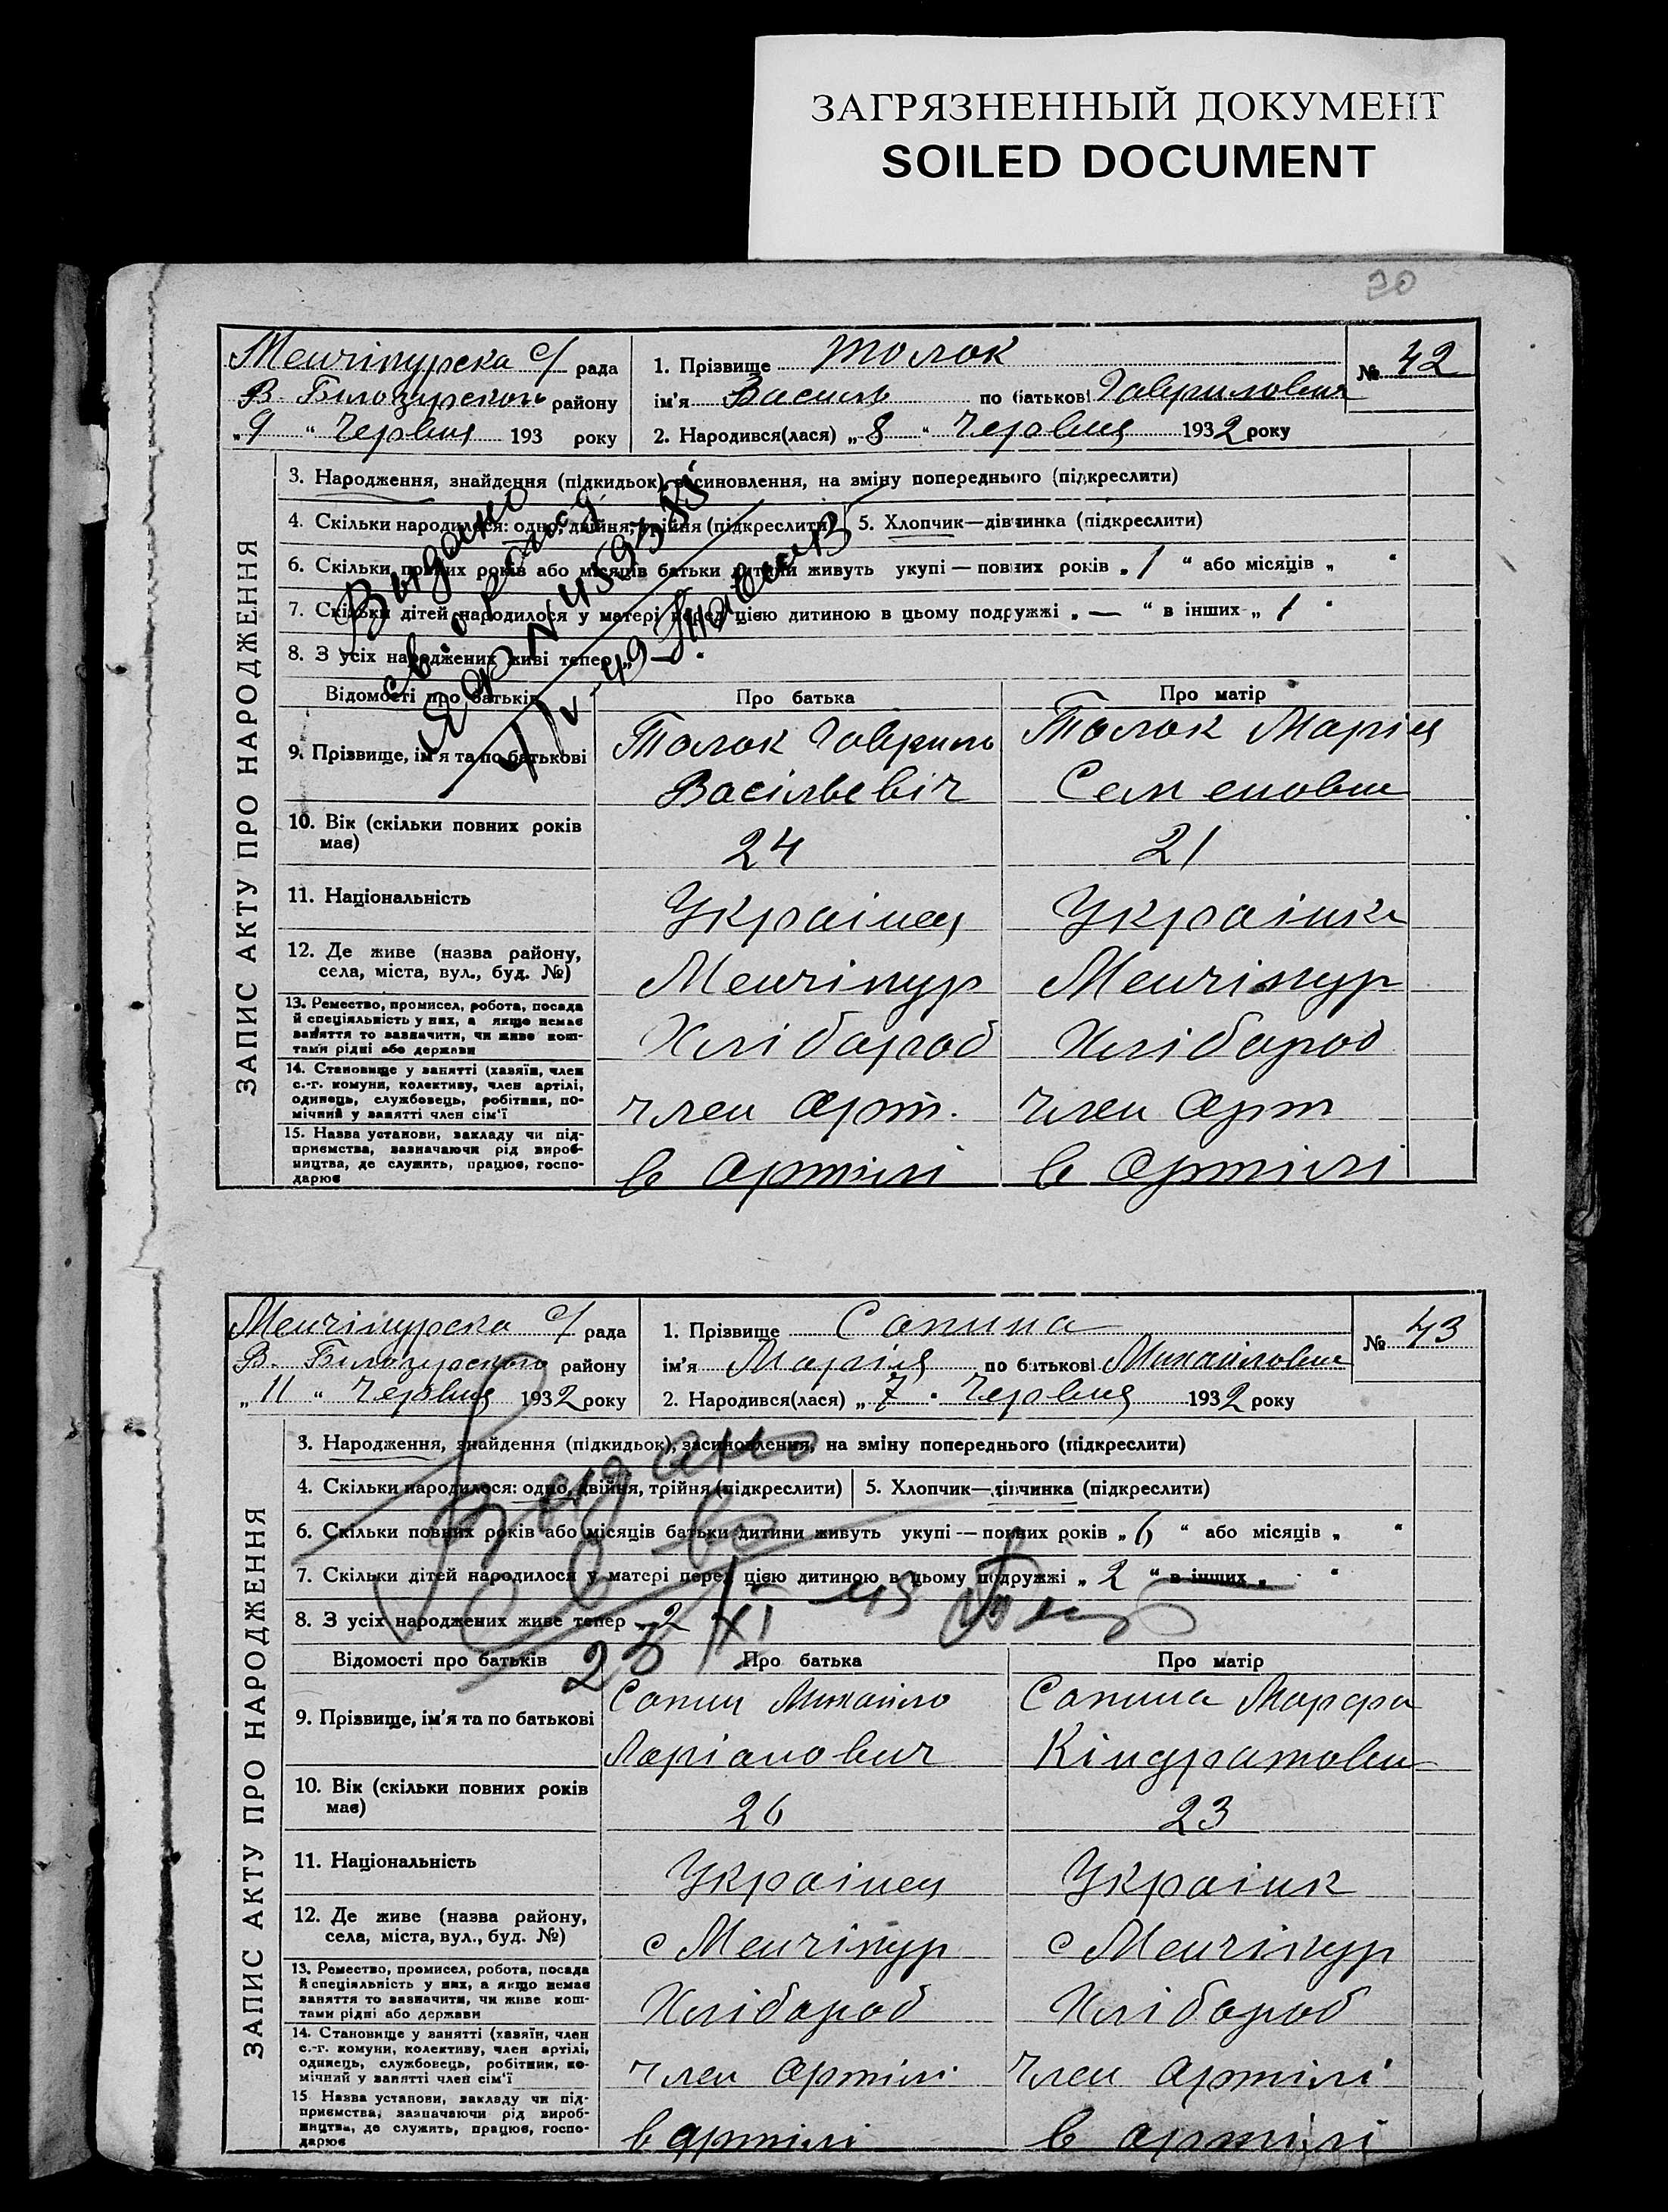 ЗАГРЯЗНЕННЫЙ ДОКУМЕНТ
SOILED DOCUMENT
30
ЗАПИС АКТУ ПРО НАРОДЖЕННЯ
Менчікурска с/ рада
В. Білозурского району
„9 “ Червня 193 року
1. Прізвище Толок
ім'я Василь по батькові Гаврилович
2. Народився(лася) „8 “ Червня 1932 року
№ 42
3. Народження, знайдення (підкидьок), засиновлення, на зміну попереднього (підкреслити)
4. Скільки народилося: одно, двійня, трійня (підкреслити) 5. Хлопчик—дівчинка (підкреслити)
6. Скільки повних років або місяців батьки дитини живуть укупі — повних років „ 1 “ або місяців „ “
7. Скільки дітей народилося у матері перед цією дитиною в цьому подружжі „ — “ в інших „ 1 “
8. З усіх народжених живі тепер „ — “
Видано
Відомості про батьків Про батька Про матір
9. Прізвище, ім'я та по батькові Толок Гаврило Васільевіч Толок Марія Семеновна
10. Вік (скільки повних років має) 24 21
11. Національність Українец Українка
12. Де живе (назва району, села, міста, вул., буд. №) Менчікур Менчікур
13. Ремество, промисел, робота, посада й спеціяльність у них, а якщо немає заняття то зазначити, чи живе коштами рідні або держави Хлібороб Хлібороб
14. Становище у занятті (хазяїн, член с.-г. комуни, колективу, член артілі, одинець, службовець, робітник, помічний у занятті член сім'ї член арт. член арт
15. Назва установи, закладу чи підприємства, зазначаючи рід виробництва, де служить, працює, господарює в артілі в артілі
ЗАПИС АКТУ ПРО НАРОДЖЕННЯ
Менчікурска с/ рада
В. Білозурского району
„11 “ Червня 1932 року
1. Прізвище Сапина
ім'я Марія по батькові Михайловна
2. Народився(лася) „ 7 “ Червня 1932 року
№ 43
3. Народження, знайдення (підкидьок), засиновлення, на зміну попереднього (підкреслити)
4. Скільки народилося: одно, двійня, трійня (підкреслити) 5. Хлопчик—дівчинка (підкреслити)
6. Скільки повних років або місяців батьки дитини живуть укупі — повних років „ 6 “ або місяців „ “
7. Скільки дітей народилося у матері перед цією дитиною в цьому подружжі „ 2 “ в інших „ “
8. З усіх народжених живе тепер „ 2
Видано
Відомості про батьків Про батька Про матір
9. Прізвище, ім'я та по батькові Сапин Михайло Ларіанович Сапина Марфа Кіндратовна
10. Вік (скільки повних років має) 26 23
11. Національність Українец Українк
12. Де живе (назва району, села, міста, вул., буд. №) с Менчікур с Менчікур
13. Ремество, промисел, робота, посада й спеціяльність у них, а якщо немає заняття то зазначити, чи живе коштами рідні або держави Хлібороб Хлібороб
14. Становище у занятті (хазяїн, член с.-г. комуни, колективу, член артілі, одинець, службовець, робітник, помічний у занятті член сім'ї член артілі член артілі
15 Назва установи, закладу чи підприємства, зазначаючи рід виробництва, де служить, працює, господарює в артілі в артілі